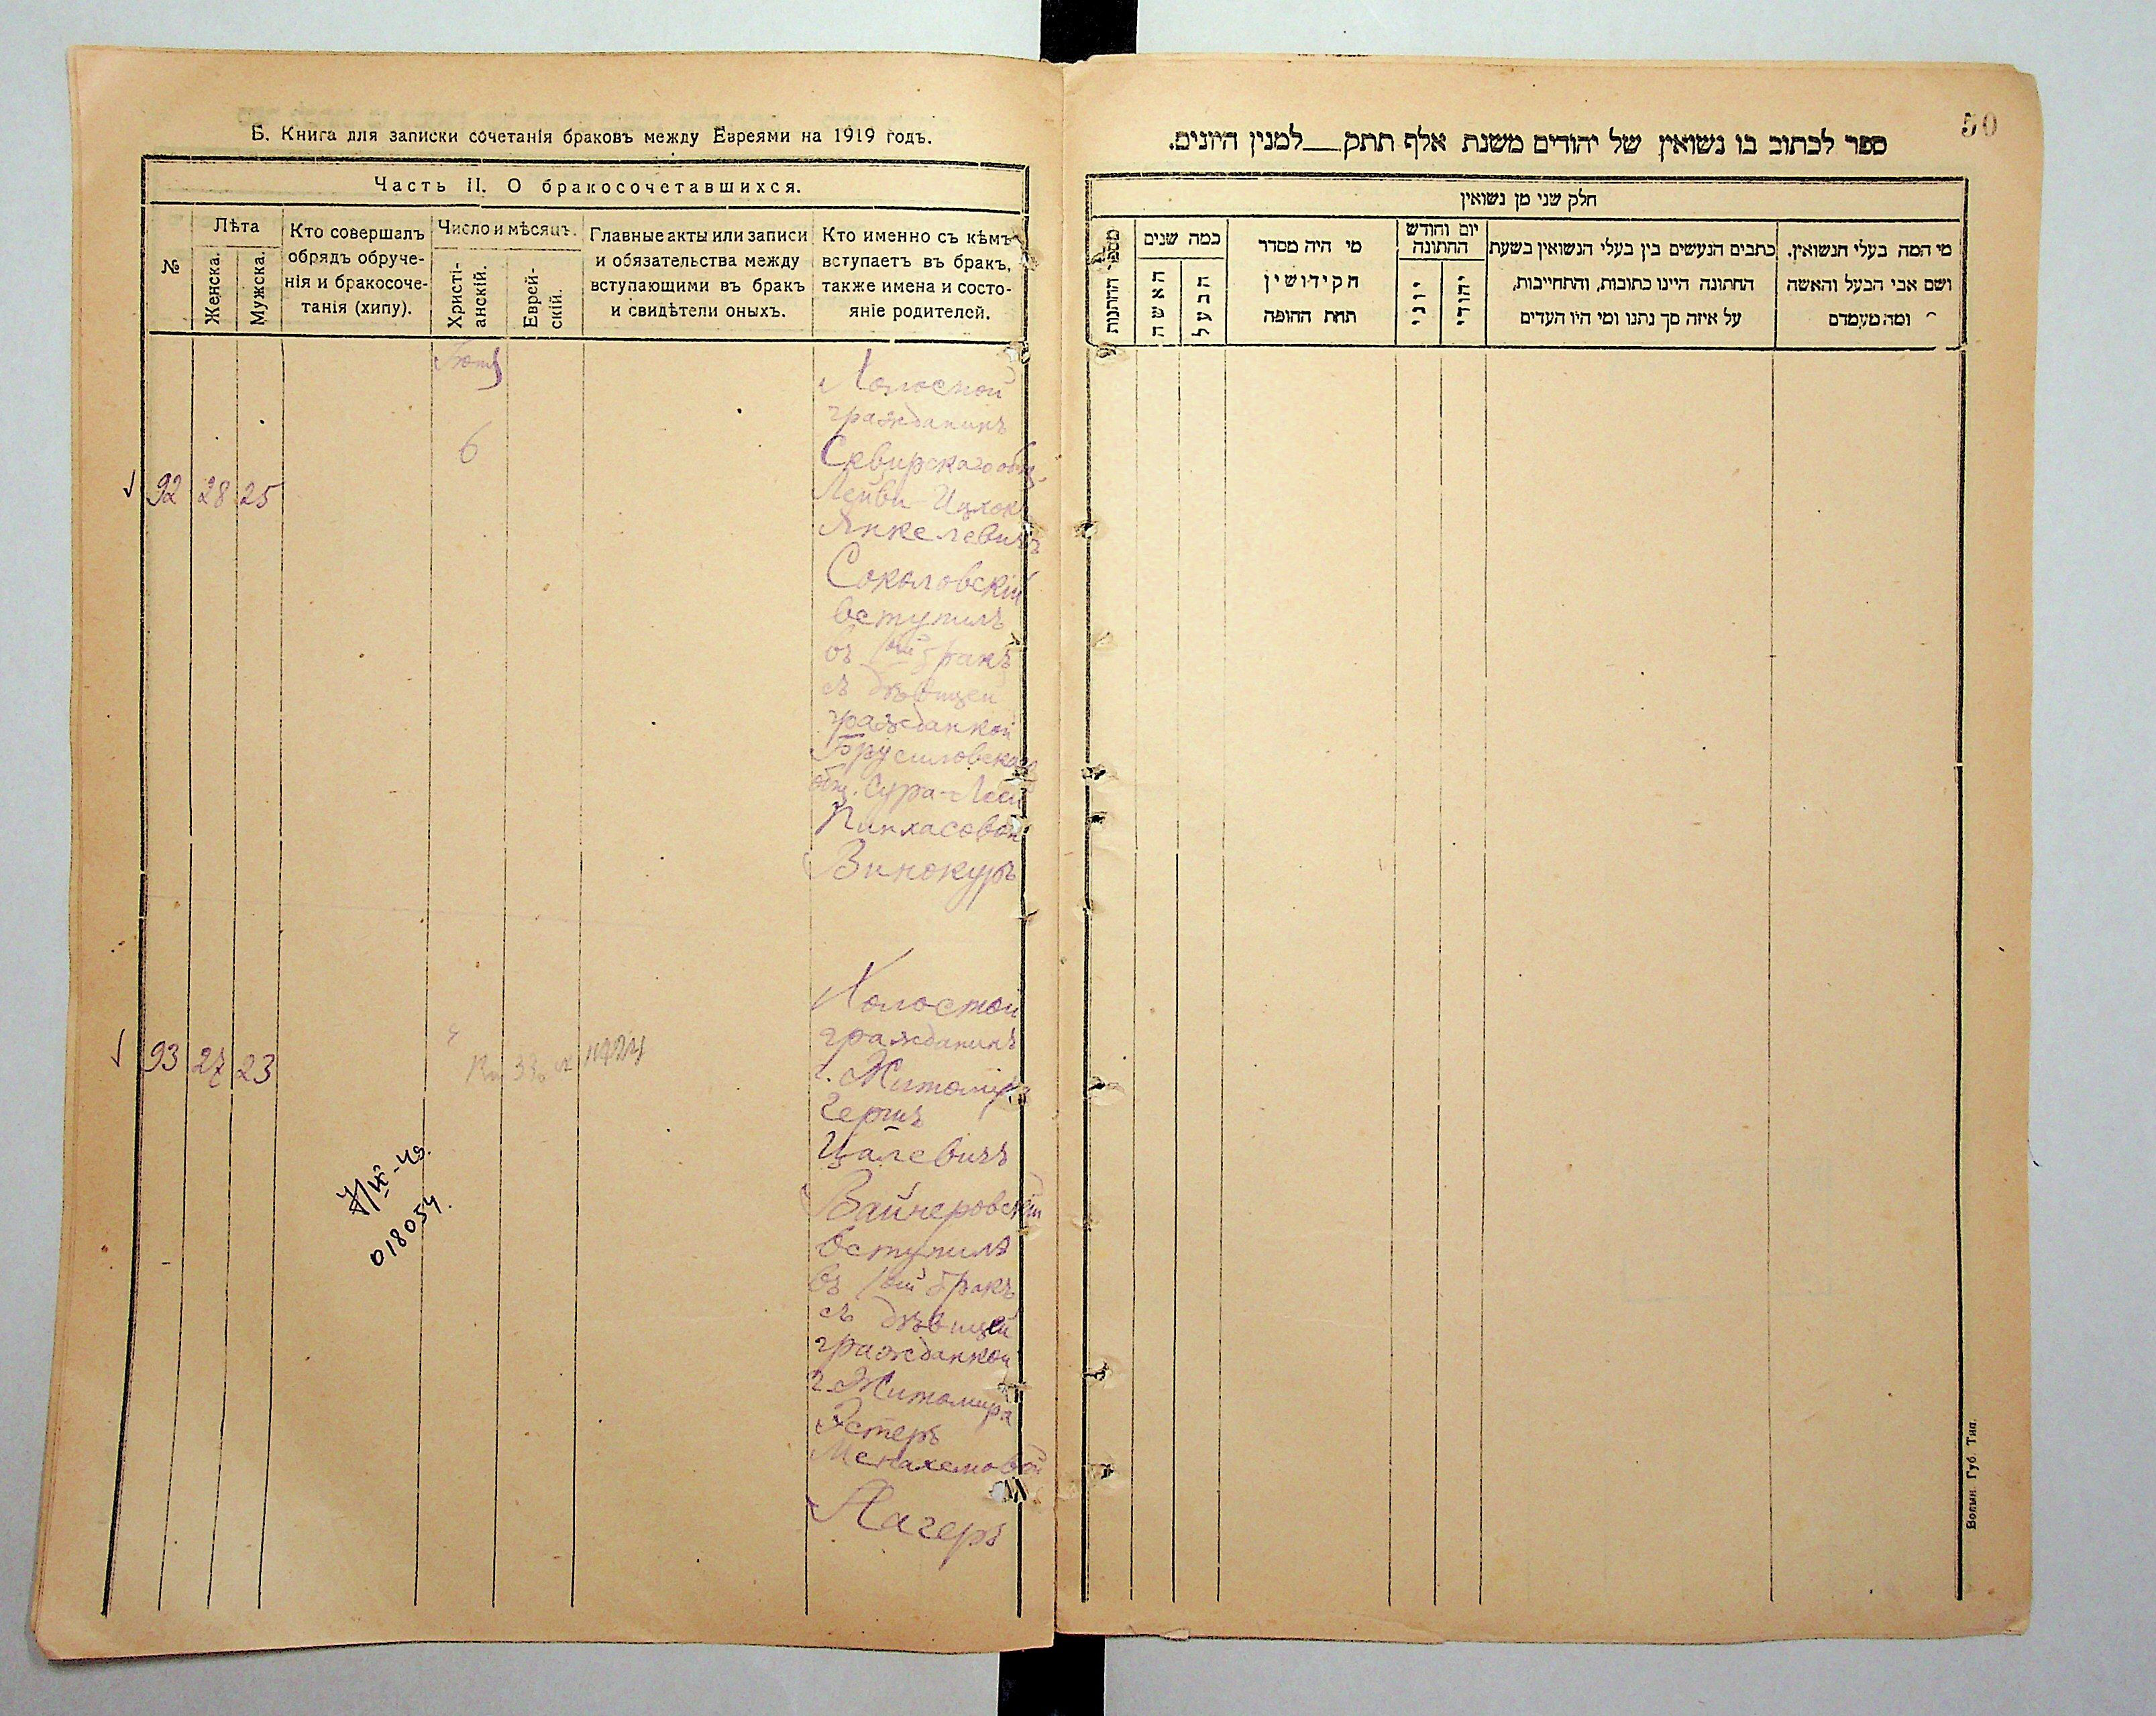 Б. Книга для записки сочетанія браковъ между Евреями на 1919 годъ.
Часть II. О бракосочетавшихся.
№
Лѣта
Женска.
Мужска.
Кто совершалъ
обрядъ обруче-
нія и бракосоче-
танія (хипу).
Число и мѣсяцъ.
Христі-
анскій.
Еврей-
скій.
Главные акты или записи
и обязательства между
вступающими въ бракъ
и свидѣтели оныхъ.
Кто именно съ кѣмъ
вступаетъ въ бракъ,
также имена и состо-
яніе родителей.
92 28 25
6
Холостой
гражданинъ
Сквирскаго общ.
Лейви-Ицхокъ
Янкелевичъ
Соколовскій
вступилъ
въ 1ый бракъ
съ дѣвицей
гражданкой
Брусиловскаго
общ. Сура-Леей
Пинхасовой
Винокуръ
93 27 23
Холостой
гражданинъ
г. Житомира
Гершъ
Цалевичъ
Вайнеровскій
вступилъ
въ 1ый бракъ
съ дѣвицей
гражданкой
г. Житомира
Эстеръ
Менахемовой
Лагеръ
018054.
50
ספר לכתוב בו נשואין של יהודים משנת אלף תתק__למנין היונים.
חלק שני מן נשואין
מספר החתונות
כמה שנים
האשה
הבעל
מי היה מסדר
הקידושין
תחת החופה
יום וחודש
החתונה
יוני
יהודי
כתבים הנעשים בין בעלי הנשואין בשעת
החתונה היינו כתובות, והתחייבות,
על איזה סך נתנו ומי היו העדים
מי המה בעלי הנשואין.
ושם אבי הבעל והאשה
ומה מעמדם
Волын. Губ. Тип.